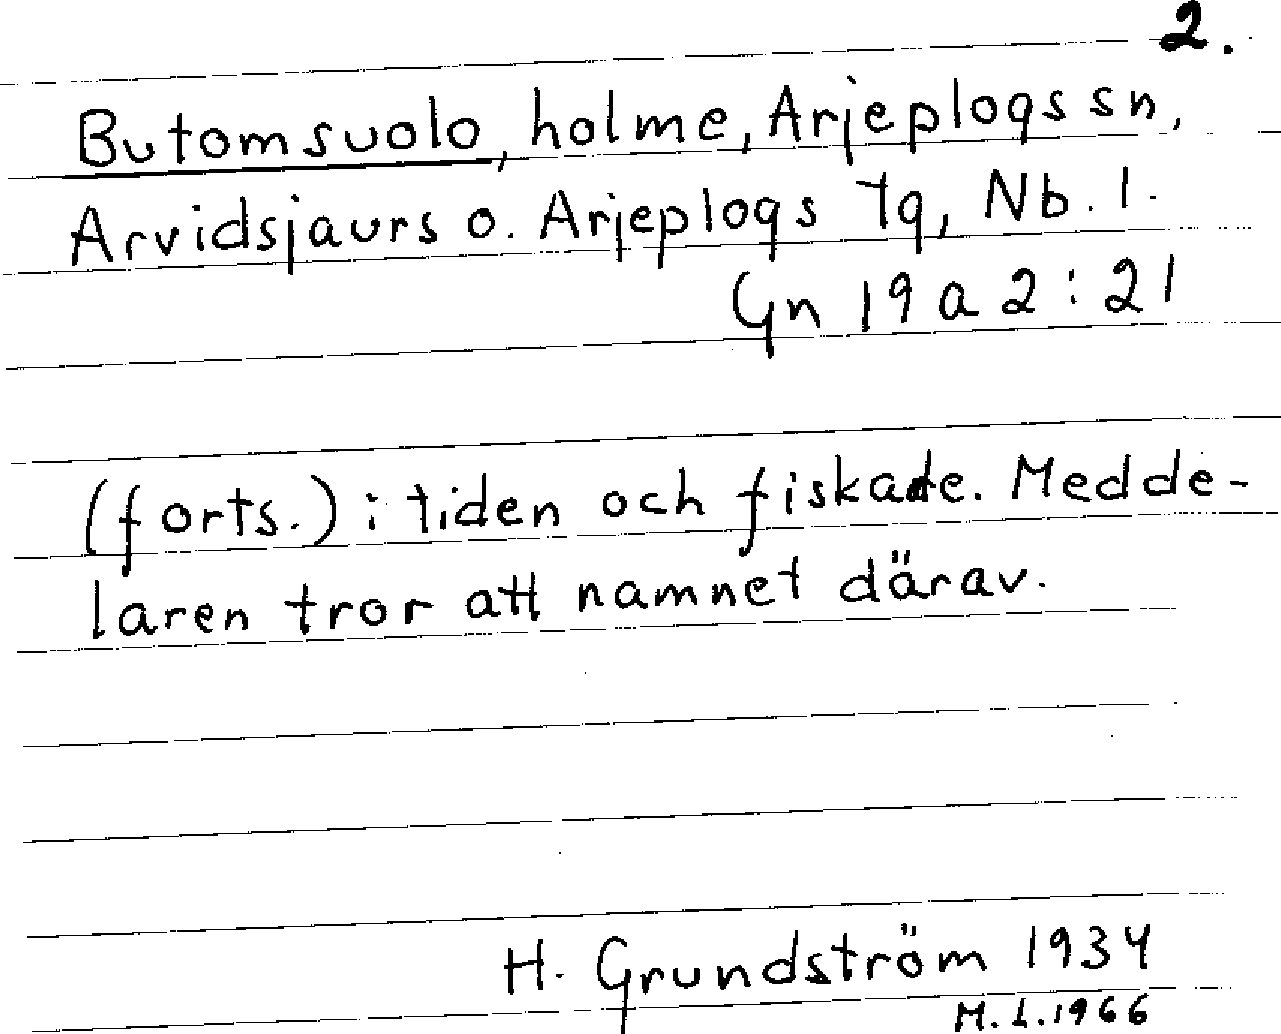 2.
Butomsuolo, holme, Arjeplogs sn,
Arvidsjaurs o. Arjeplogs tg, Nb. l.
Gn 19 a 2 : 21
(forts.) i tiden och fiskade. Medde-
laren tror att namnet därav.
H. Grundström 1934
M. L. 1966